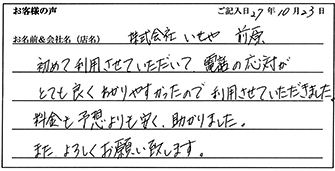 お客様の声 ご記入日27年10月23日
お名前&会社名(店名) 株式会社 いせや 前原
初めて利用させていただいて、電話の応対が
とても良くわかりやすかったので利用させていただきました。
料金も予想よりも安く、助かりました。
また、よろしくお願い致します。